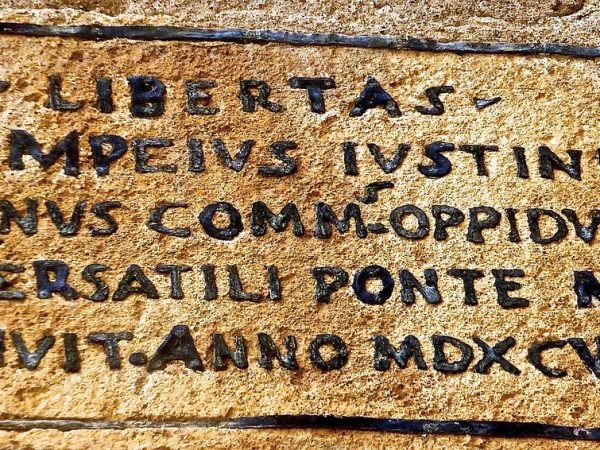 LIBERTAS
MPEIVS IVSTIN
NVS COMM.S OPPIDV
ERSATILI PONTE
VIT. ANNO MDXCV